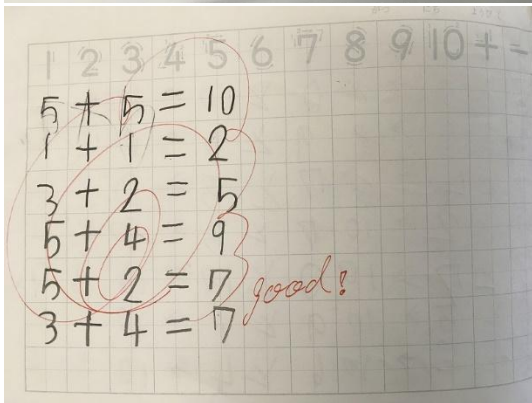 1 2 3 4 5 6 7 8 9 10 + =
5 + 5 = 10
1 + 1 = 2
3 + 2 = 5
5 + 4 = 9
5 + 2 = 7
good!
3 + 4 = 7